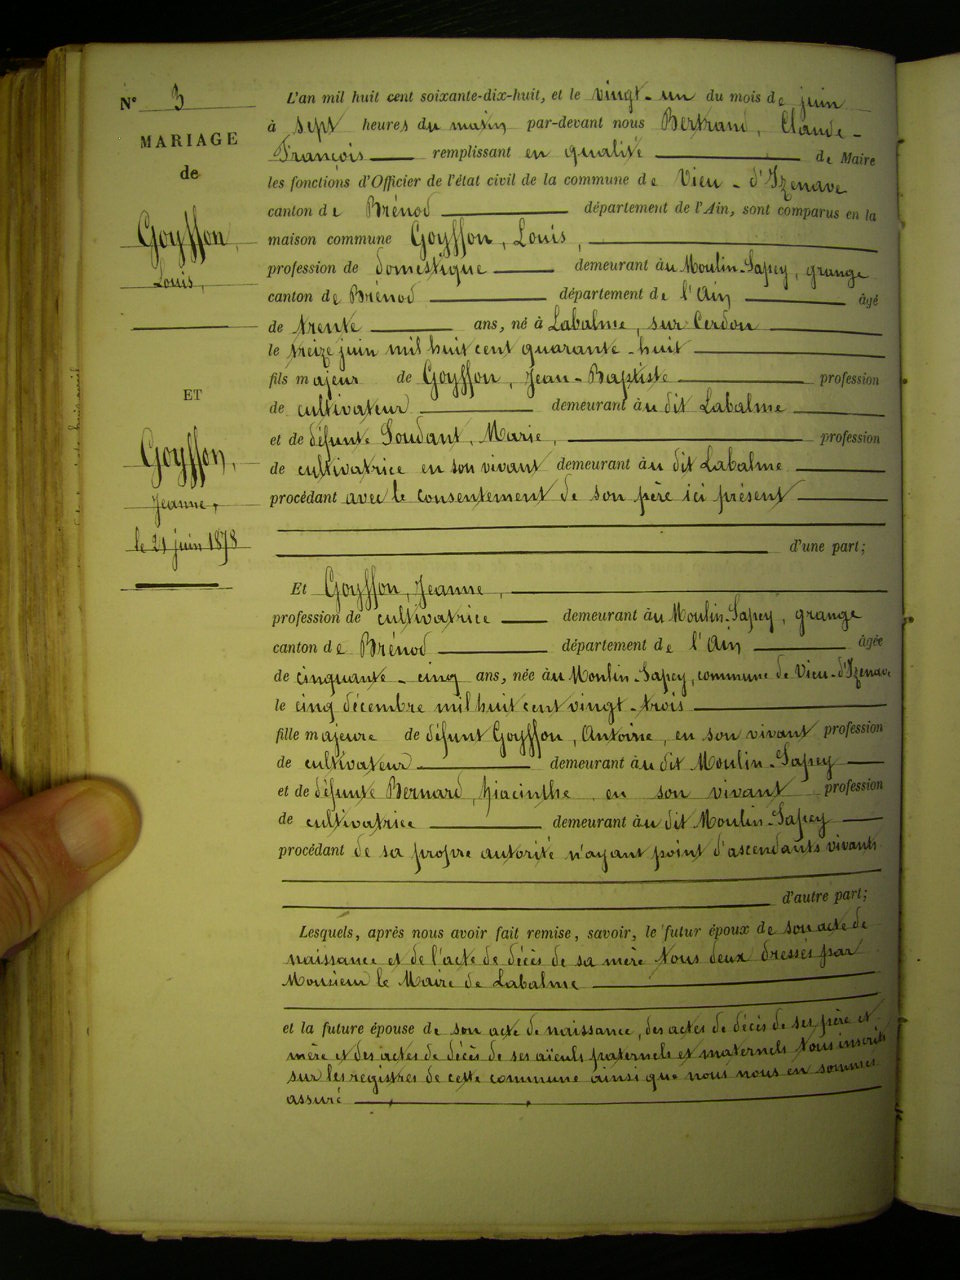 N° 3
MARIAGE
de
Goyffon,
Louis,
ET
Goyffon,
Jeanne,
le 21 juin 1878
L'an mil huit cent soixante-dix-huit, et le vingt-un du mois de juin
à sept heures du matin par-devant nous Bertrand, Claude-
François remplissant en qualité de Maire
les fonctions d'Officier de l'état civil de la commune de Vieu-d'Izenave
canton de Brénod département de l'Ain, sont comparus en la
maison commune Goyffon, Louis,
profession de domestique demeurant àu Moulin-Sapey, grange
canton de Brénod département de l'Ain âgé
de trente ans, né à Labalme, sur Cerdon
le treize juin mil huit cent quarante-huit
fils majeur de Goyffon, Jean-Baptiste profession
de cultivateur demeurant àu dit Labalme
et de défunte Goudant, Marie, profession
de cultivatrice en son vivant demeurant àu dit Labalme
procédant avec le consentement de son père ici présent
d'une part;
Et Goyffon, Jeanne,
profession de cultivatrice demeurant àu Moulin-Sapey, grange
canton de Brénod département de l'Ain âgée
de cinquante-cinq ans, née àu Moulin-Sapey, commune de Vieu-d'Izenave
le cinq décembre mil huit cent vingt-trois
fille majeure de défunt Goyffon, Antoine, en son vivant profession
de cultivateur demeurant àu dit Moulin-Sapey
et de défunte Bernard, Hiacinthe en son vivant profession
de cultivatrice demeurant àu dit Moulin-Sapey
procédant de sa propre autorité n'ayant point d'ascendants vivants
d'autre part;
Lesquels, après nous avoir fait remise, savoir, le futur époux de son acte de
naissance et de l'acte de décès de sa mère tous deux dressés par
Monsieur le Maire de Labalme
et la future épouse de son acte de naissance, des actes de décès de ses père et
mère et des actes de décès de ses aïeuls paternels et maternels tous inscrits
sur les registres de cette commune ainsi que nous nous en sommes
assuré